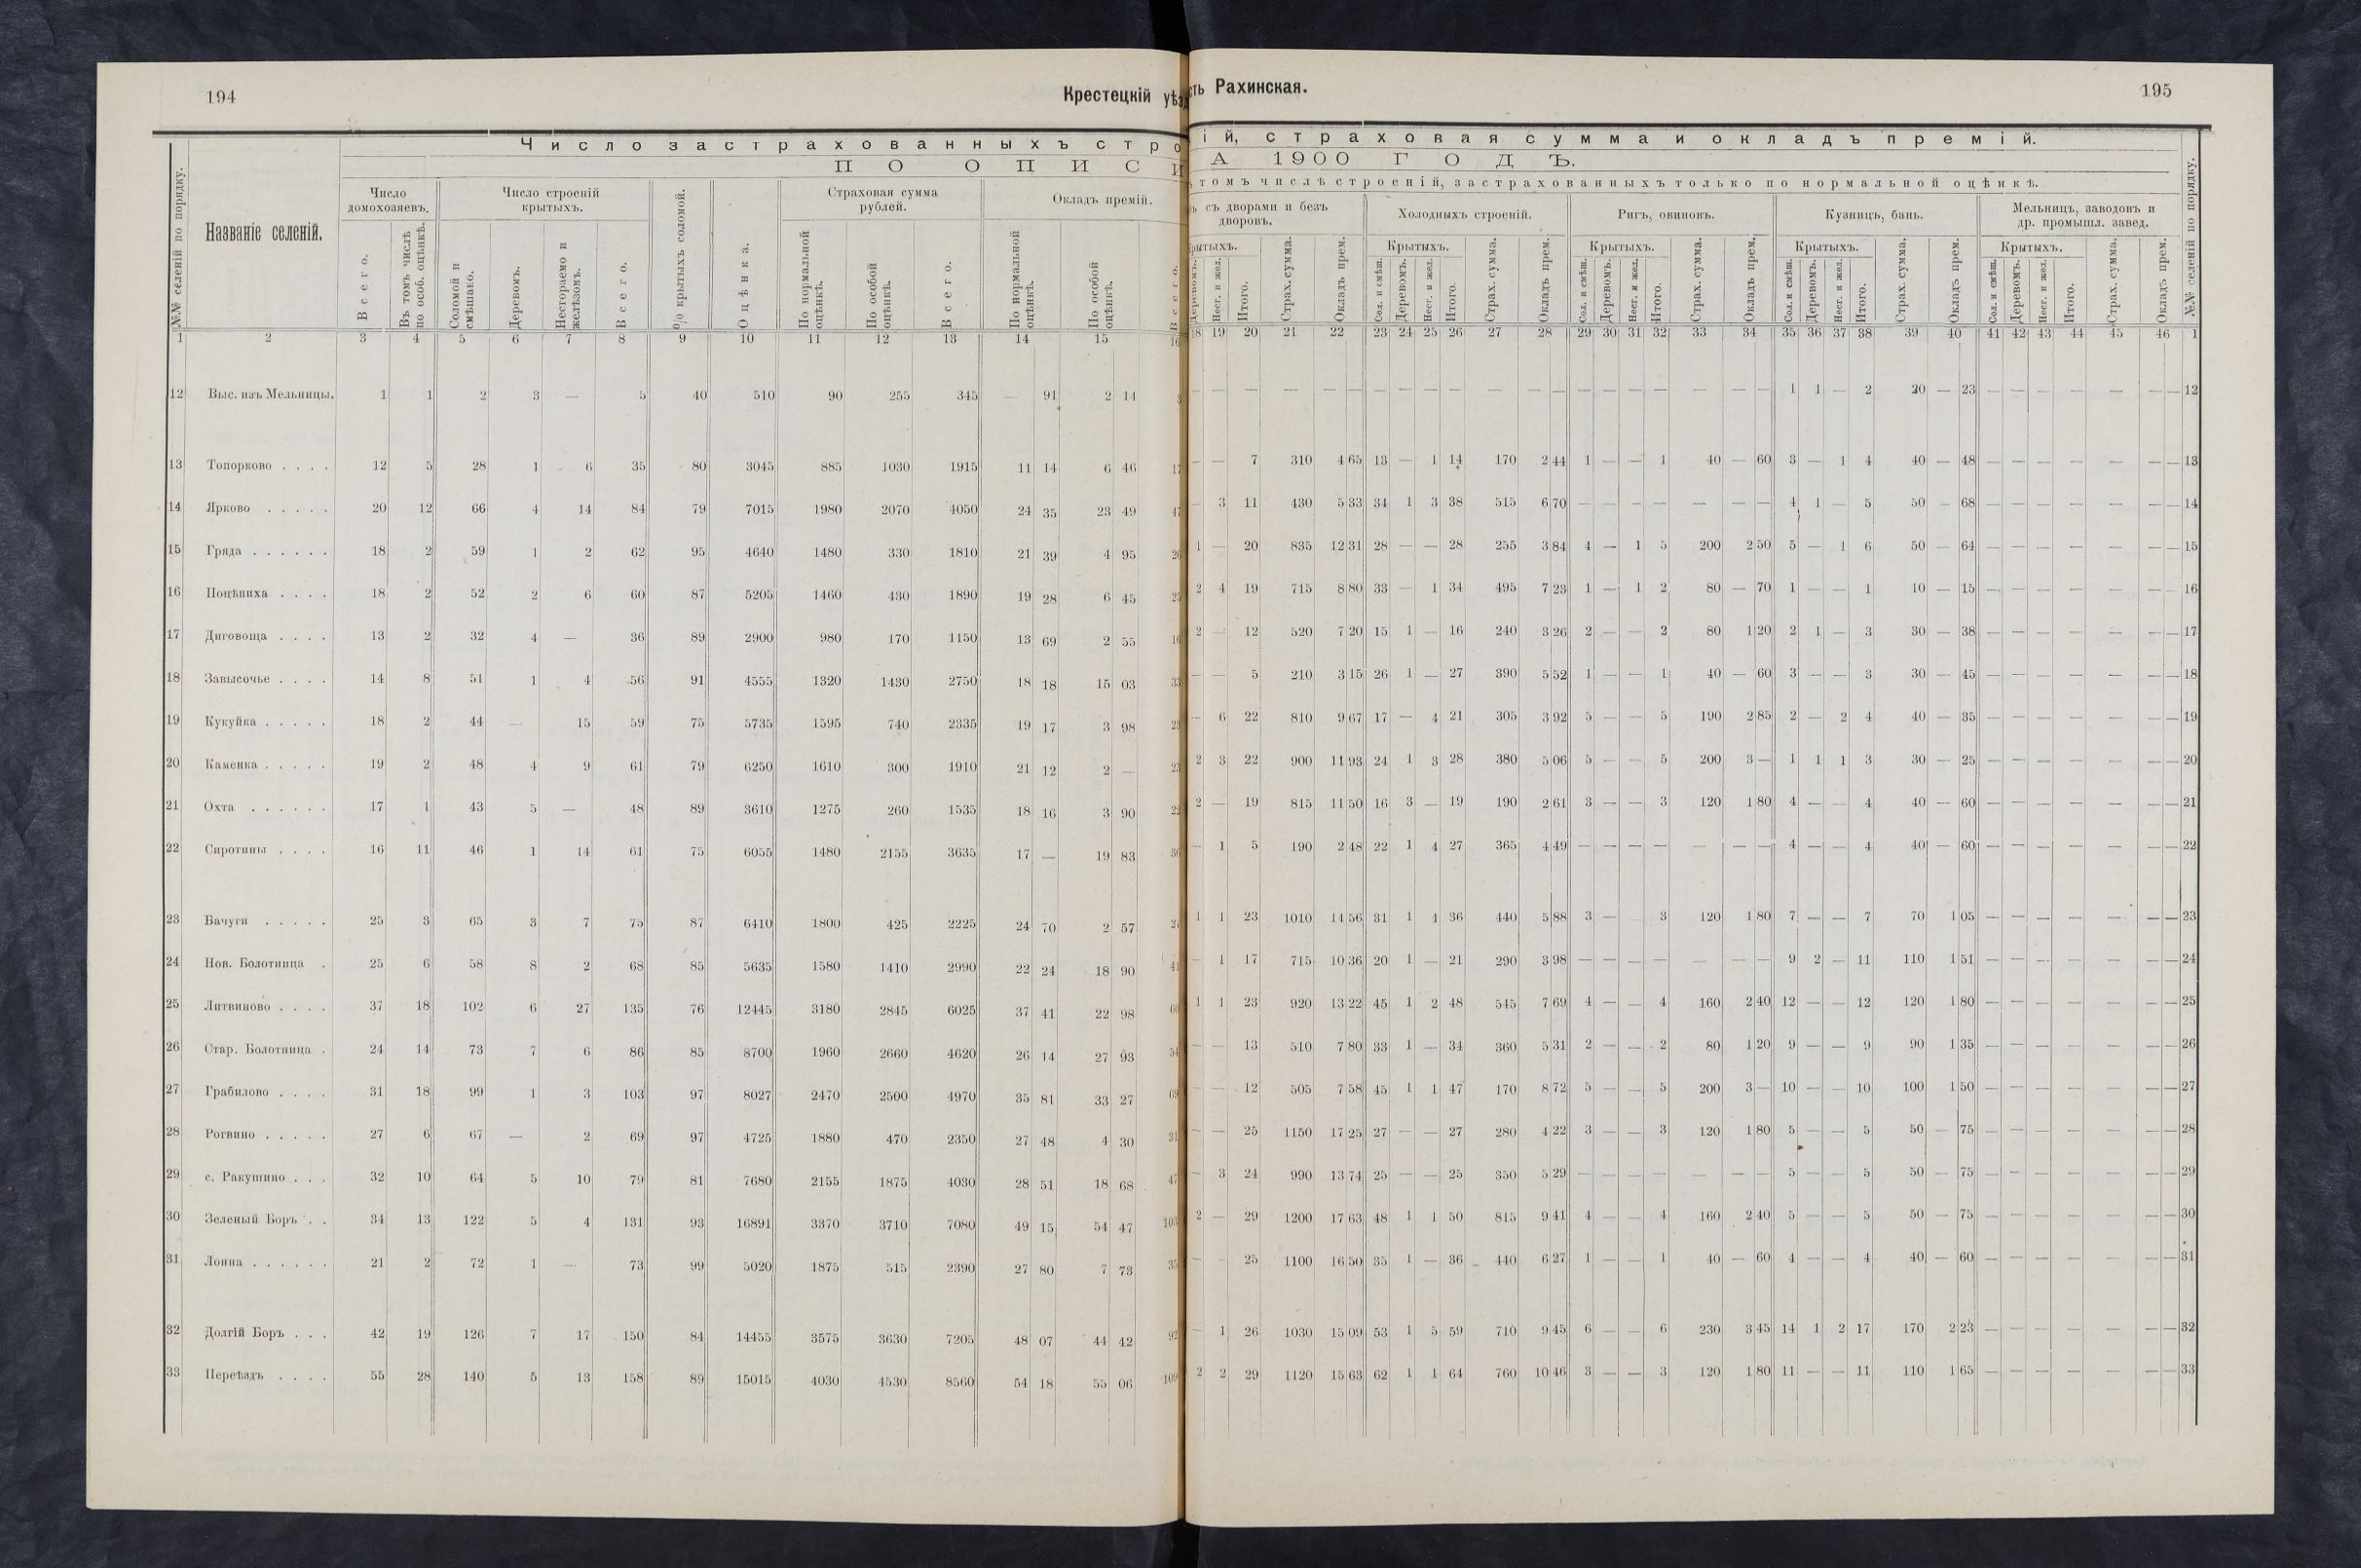 194
Крестецкій уѣзд
Число застрахованныхъ стро
ПО ОПИСИ
№№ селеній по порядку.
Названіе селеній.
Число домохозяевъ.
Всего.
Въ томъ числѣ по особ. оцѣнкѣ.
Число строеній крытыхъ.
Соломой и смѣшано.
Деревомъ.
Несгораемо и желѣзомъ.
Всего.
% крытыхъ соломой.
Оцѣнка.
Страховая сумма рублей.
По нормальной оцѣнкѣ.
По особой оцѣнкѣ.
Всего.
Окладъ премій.
По нормальной оцѣнкѣ.
По особой оцѣнкѣ.
Всего.
1 2 3 4 5 6 7 8 9 10 11 12 13 14 15 16
12 Выс. изъ Мельницы. 1 1 2 3 — 5 40 510 90 255 345 — 91 2 14 3
13 Топорково . . . . 12 5 28 1 6 35 80 3045 885 1030 1915 11 14 6 46 17
14 Ярково . . . . . 20 12 66 4 14 84 79 7015 1980 2070 4050 24 35 23 49 47
15 Гряда . . . . . . 18 2 59 1 2 62 95 4640 1480 330 1810 21 39 4 95 26
16 Поцѣпиха . . . . 18 2 52 2 6 60 87 5205 1460 430 1890 19 28 6 45 25
17 Диговоща . . . . 13 2 32 4 — 36 89 2900 980 170 1150 13 69 2 55 16
18 Завысочье . . . . 14 8 51 1 4 56 91 4555 1320 1430 2750 18 18 15 03 33
19 Кукуйка . . . . . 18 2 44 — 15 59 75 5735 1595 740 2335 19 17 3 98 23
20 Каменка . . . . . 19 2 48 4 9 61 79 6250 1610 300 1910 21 12 2 — 23
21 Охта . . . . . . 17 1 43 5 — 48 89 3610 1275 260 1535 18 16 3 90 22
22 Сиротины . . . . 16 11 46 1 14 61 75 6055 1480 2155 3635 17 — 19 83 36
23 Вачуги . . . . . 25 3 65 3 7 75 87 6410 1800 425 2225 24 70 2 57 27
24 Нов. Болотница . 25 6 58 8 2 68 85 5635 1580 1410 2990 22 24 18 90 41
25 Литвиново . . . . 37 18 102 6 27 135 76 12445 3180 2845 6025 37 41 22 98 60
26 Стар. Болотница . 24 14 73 7 6 86 85 8700 1960 2660 4620 26 14 27 93 54
27 Грабилово . . . . 31 18 99 1 3 103 97 8027 2470 2500 4970 35 81 33 27 69
28 Рогвино . . . . . 27 6 67 — 2 69 97 4725 1880 470 2350 27 48 4 30 31
29 с. Ракушино . . . 32 10 64 5 10 79 81 7680 2155 1875 4030 28 51 18 68 47
30 Зеленый Боръ . . 34 13 122 5 4 131 93 16891 3370 3710 7080 49 15 54 47 103
31 Лонна . . . . . . 21 2 72 1 — 73 99 5020 1875 515 2390 27 80 7 73 35
32 Долгій Боръ . . . 42 19 126 7 17 150 84 14455 3575 3630 7205 48 07 44 42 92
33 Переѣздъ . . . . 55 28 140 5 13 158 89 15015 4030 4530 8560 54 18 55 06 109
сть Рахинская.
195
ій, страховая сумма и окладъ премій.
А 1900 ГОДЪ.
томъ числѣ строеній, застрахованныхъ только по нормальной оцѣнкѣ.
съ дворами и безъ дворовъ.
рытыхъ.
Деревомъ.
Несг. и жел.
Итого.
Страх. сумма.
Окладъ прем.
Холодныхъ строеній.
Крытыхъ.
Сол. и смѣш.
Деревомъ.
Несг. и жел.
Итого.
Страх. сумма.
Окладъ прем.
Ригъ, овиновъ.
Крытыхъ.
Сол. и смѣш.
Деревомъ.
Несг. и жел.
Итого.
Страх. сумма.
Окладъ прем.
Кузницъ, бань.
Крытыхъ.
Сол. и смѣш.
Деревомъ.
Несг. и жел.
Итого.
Страх. сумма.
Окладъ прем.
Мельницъ, заводовъ и др. промышл. завед.
Крытыхъ.
Сол. и смѣш.
Деревомъ.
Несг. и жел.
Итого.
Страх. сумма.
Окладъ прем.
№№ селеній по порядку.
18 19 20 21 22 23 24 25 26 27 28 29 30 31 32 33 34 35 36 37 38 39 40 41 42 43 44 45 46 1
— — — — — — — — — — — — — — — — — — — — — 1 1 — 2 20 — 23 — — — — — — — 12
— — 7 310 4 65 13 — 1 14 170 2 44 1 — — 1 40 — 60 3 — 1 4 40 — 48 — — — — — — — 13
— 3 11 430 5 33 34 1 3 38 515 6 70 — — — — — — — 4 1 — 5 50 — 68 — — — — — — — 14
1 — 20 835 12 31 28 — — 28 255 3 84 4 — 1 5 200 2 50 5 — 1 6 50 — 64 — — — — — — — 15
2 4 19 715 8 80 33 — 1 34 495 7 23 1 — 1 2 80 — 70 1 — — 1 10 — 15 — — — — — — — 16
2 — 12 520 7 20 15 1 — 16 240 3 26 2 — — 2 80 1 20 2 1 — 3 30 — 38 — — — — — — — 17
— — 5 210 3 15 26 1 — 27 390 5 52 1 — — 1 40 — 60 3 — — 3 30 — 45 — — — — — — — 18
— 6 22 810 9 67 17 — 4 21 305 3 92 5 — — 5 190 2 85 2 — 2 4 40 — 35 — — — — — — — 19
2 3 22 900 11 93 24 1 3 28 380 5 06 5 — — 5 200 3 — 1 1 1 3 30 — 25 — — — — — — — 20
2 — 19 815 11 50 16 3 — 19 190 2 61 3 — — 3 120 1 80 4 — — 4 40 — 60 — — — — — — — 21
— 1 5 190 2 48 22 1 4 27 365 4 49 — — — — — — — 4 — — 4 40 — 60 — — — — — — — 22
1 1 23 1010 14 56 31 1 4 36 440 5 88 3 — 3 120 1 80 7 — — 7 70 1 05 — — — — — — — 23
— 1 17 715 10 36 20 1 — 21 290 3 98 — — — — — — — 9 2 — 11 110 1 51 — — — — — — — 24
1 1 23 920 13 22 45 1 2 48 545 7 69 4 — — 4 160 2 40 12 — — 12 120 1 80 — — — — — — — 25
— — 13 510 7 80 33 1 — 34 360 5 31 2 — — 2 80 1 20 9 — — 9 90 1 35 — — — — — — — 26
— — 12 505 7 58 45 1 1 47 170 8 72 5 — — 5 200 3 — 10 — — 10 100 1 50 — — — — — — — 27
— — 25 1150 17 25 27 — — 27 280 4 22 3 — — 3 120 1 80 5 — — 5 50 — 75 — — — — — — — 28
— 3 24 990 13 74 25 — — 25 350 5 29 — — — — — — — 5 — — 5 50 — 75 — — — — — — — 29
2 — 29 1200 17 63 48 1 1 50 815 9 41 4 — — 4 160 2 40 5 — — 5 50 — 75 — — — — — — — 30
— — 25 1100 16 50 35 1 — 36 440 6 27 1 — — 1 40 — 60 4 — — 4 40 — 60 — — — — — — — 31
— 1 26 1030 15 09 53 1 5 59 710 9 45 6 — — 6 230 3 45 14 1 2 17 170 2 23 — — — — — — — 32
2 2 29 1120 15 63 62 1 1 64 760 10 46 3 — — 3 120 1 80 11 — — 11 110 1 65 — — — — — — — 33